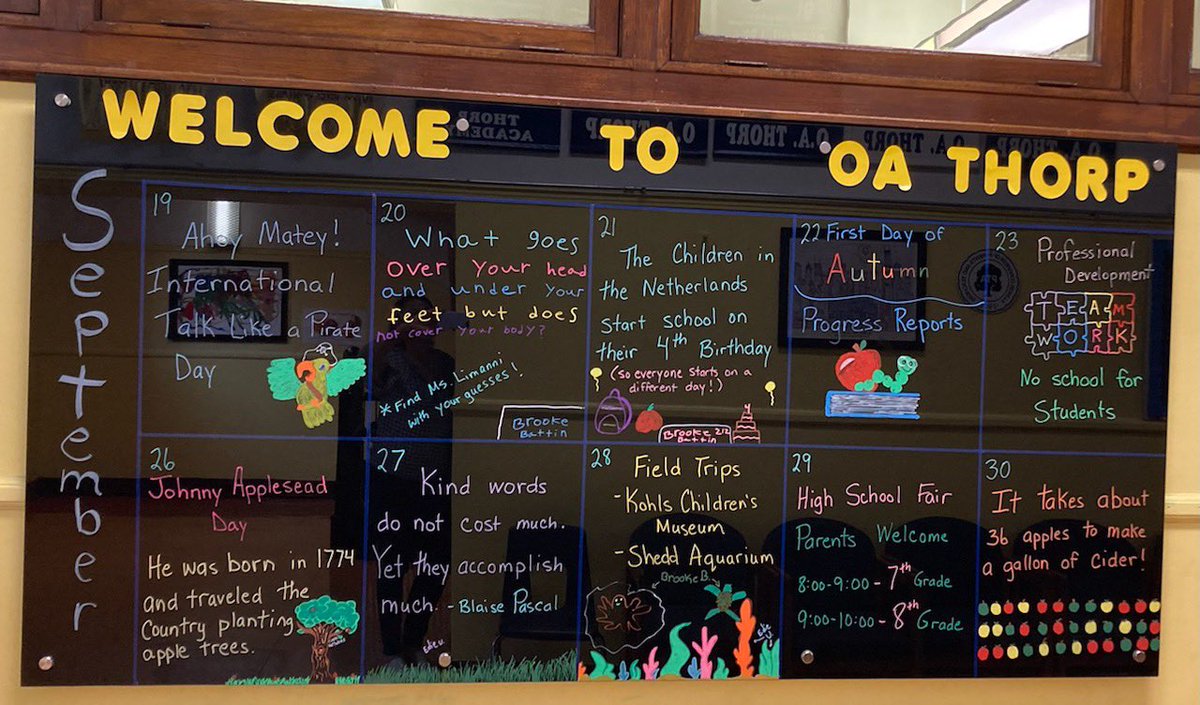 WELCOME TO OA THORP
September
19
Ahoy Matey!
International
Talk Like a Pirate
Day
20
What goes
over your head
and under your
feet but does
not cover your body?
*Find Ms. Limanni
with your guesses!
Brooke
Battin
21
The Children in
the Netherlands
start school on
their 4th Birthday
(so everyone starts on a
different day!)
Brooke 212
Battin
22 First Day of
Autumn
Progress Reports
23
Professional
Development
TEAM
WORK
No school for
Students
26
Johnny Applesead
Day
He was born in 1774
and traveled the
Country planting
apple trees.
27
Kind words
do not cost much.
Yet they accomplish
much. - Blaise Pascal
28
Field Trips
- Kohls Children's
Museum
- Shedd Aquarium
Brooke B.
29
High School Fair
Parents Welcome
8:00-9:00 - 7th Grade
9:00-10:00 - 8th Grade
30
It takes about
36 apples to make
a gallon of Cider!